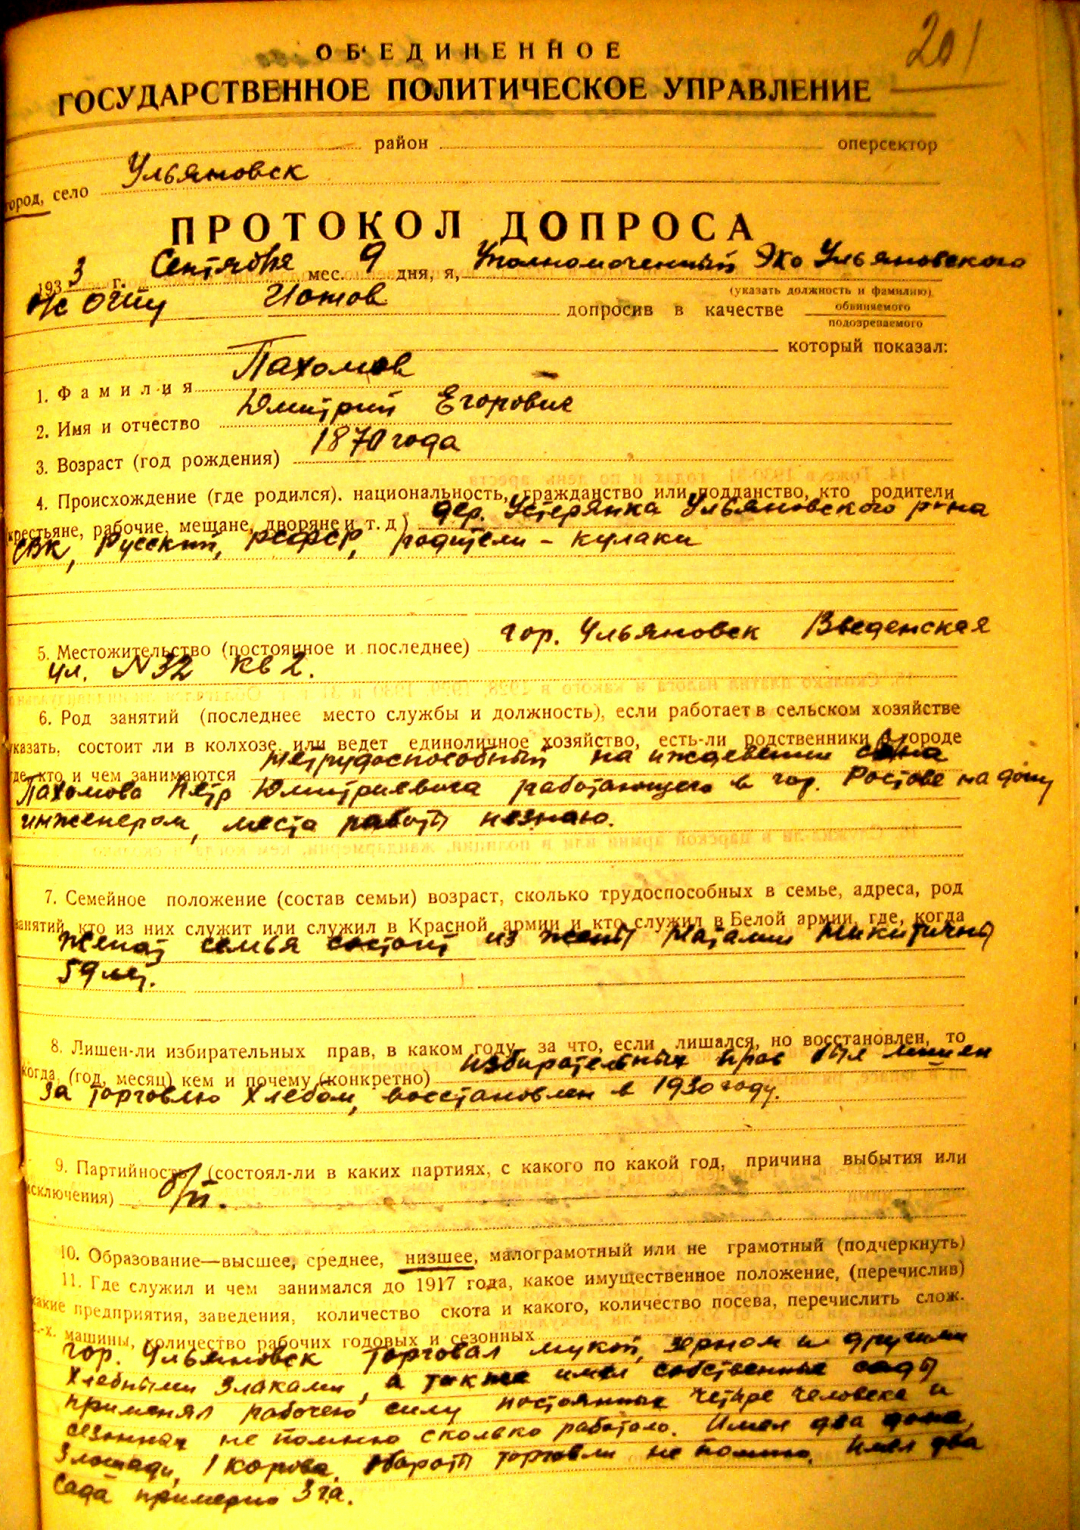 201
ОБ‘ЕДИНЕННОЕ
ГОСУДАРСТВЕННОЕ ПОЛИТИЧЕСКОЕ УПРАВЛЕНИЕ
район оперсектор
город, село Ульяновск
ПРОТОКОЛ ДОПРОСА
1933 г. Сентября мес. 9 дня, я, Уполномоченный Эко Ульяновского
(указать должность и фамилию)
о/с ОГПУ допросив в качестве обвиняемого
подозреваемого
который показал:
1. Фамилия Пахомов
2. Имя и отчество Дмитрий Егорович
3. Возраст (год рождения) 1870 года
4. Происхождение (где родился). национальность, гражданство или подданство, кто родители
крестьяне, рабочие, мещане, дворяне и т. д) дер. Устерянка Ульяновского р-на
СВК, Русский, РСФСР, родители - кулаки
5. Местожительство (постоянное и последнее) гор. Ульяновск Введенская
ул. N 32 кв 2.
6. Род занятий (последнее место службы и должность), если работает в сельском хозяйстве
указать, состоит ли в колхозе, или ведет единоличное хозяйство, есть-ли родственники в городе
где, кто и чем занимаются нетрудоспособный на иждевении сына
Пахомова Петр Дмитриевича работающего в гор. Ростове на дону
инженером, места работы незнаю.
7. Семейное положение (состав семьи) возраст, сколько трудоспособных в семье, адреса, род
занятий, кто из них служит или служил в Красной армии и кто служил в Белой армии, где, когда
Женат семья состоит из жены Наталии Никитичны
59 лет.
8. Лишен-ли избирательных прав, в каком году, за что, если лишался, но восстановлен, то
когда, (год, месяц) кем и почему (конкретно) избирательных прав был лишен
за торговлю хлебом, восстановлен в 1930 году.
9. Партийность (состоял-ли в каких партиях, с какого по какой год, причина выбытия или
исключения) б/п.
10. Образование—высшее, среднее, низшее, малограмотный или не грамотный (подчеркнуть)
11. Где служил и чем занимался до 1917 года, какое имущественное положение, (перечислив)
какие предприятия, заведения, количество скота и какого, количество посева, перечислить слож.
с.-х. машины, количество рабочих годовых и сезонных
гор. Ульяновск торговал мукой, зерном и другими
хлебными злаками, а также имел собственные сады
применял рабочею силу постоянных четыре человека и
сезонная не помню сколько работало. Имел два дома,
3 лошади, 1 корова, обороты торговли не помню, имел два
сада примерно 3 га.